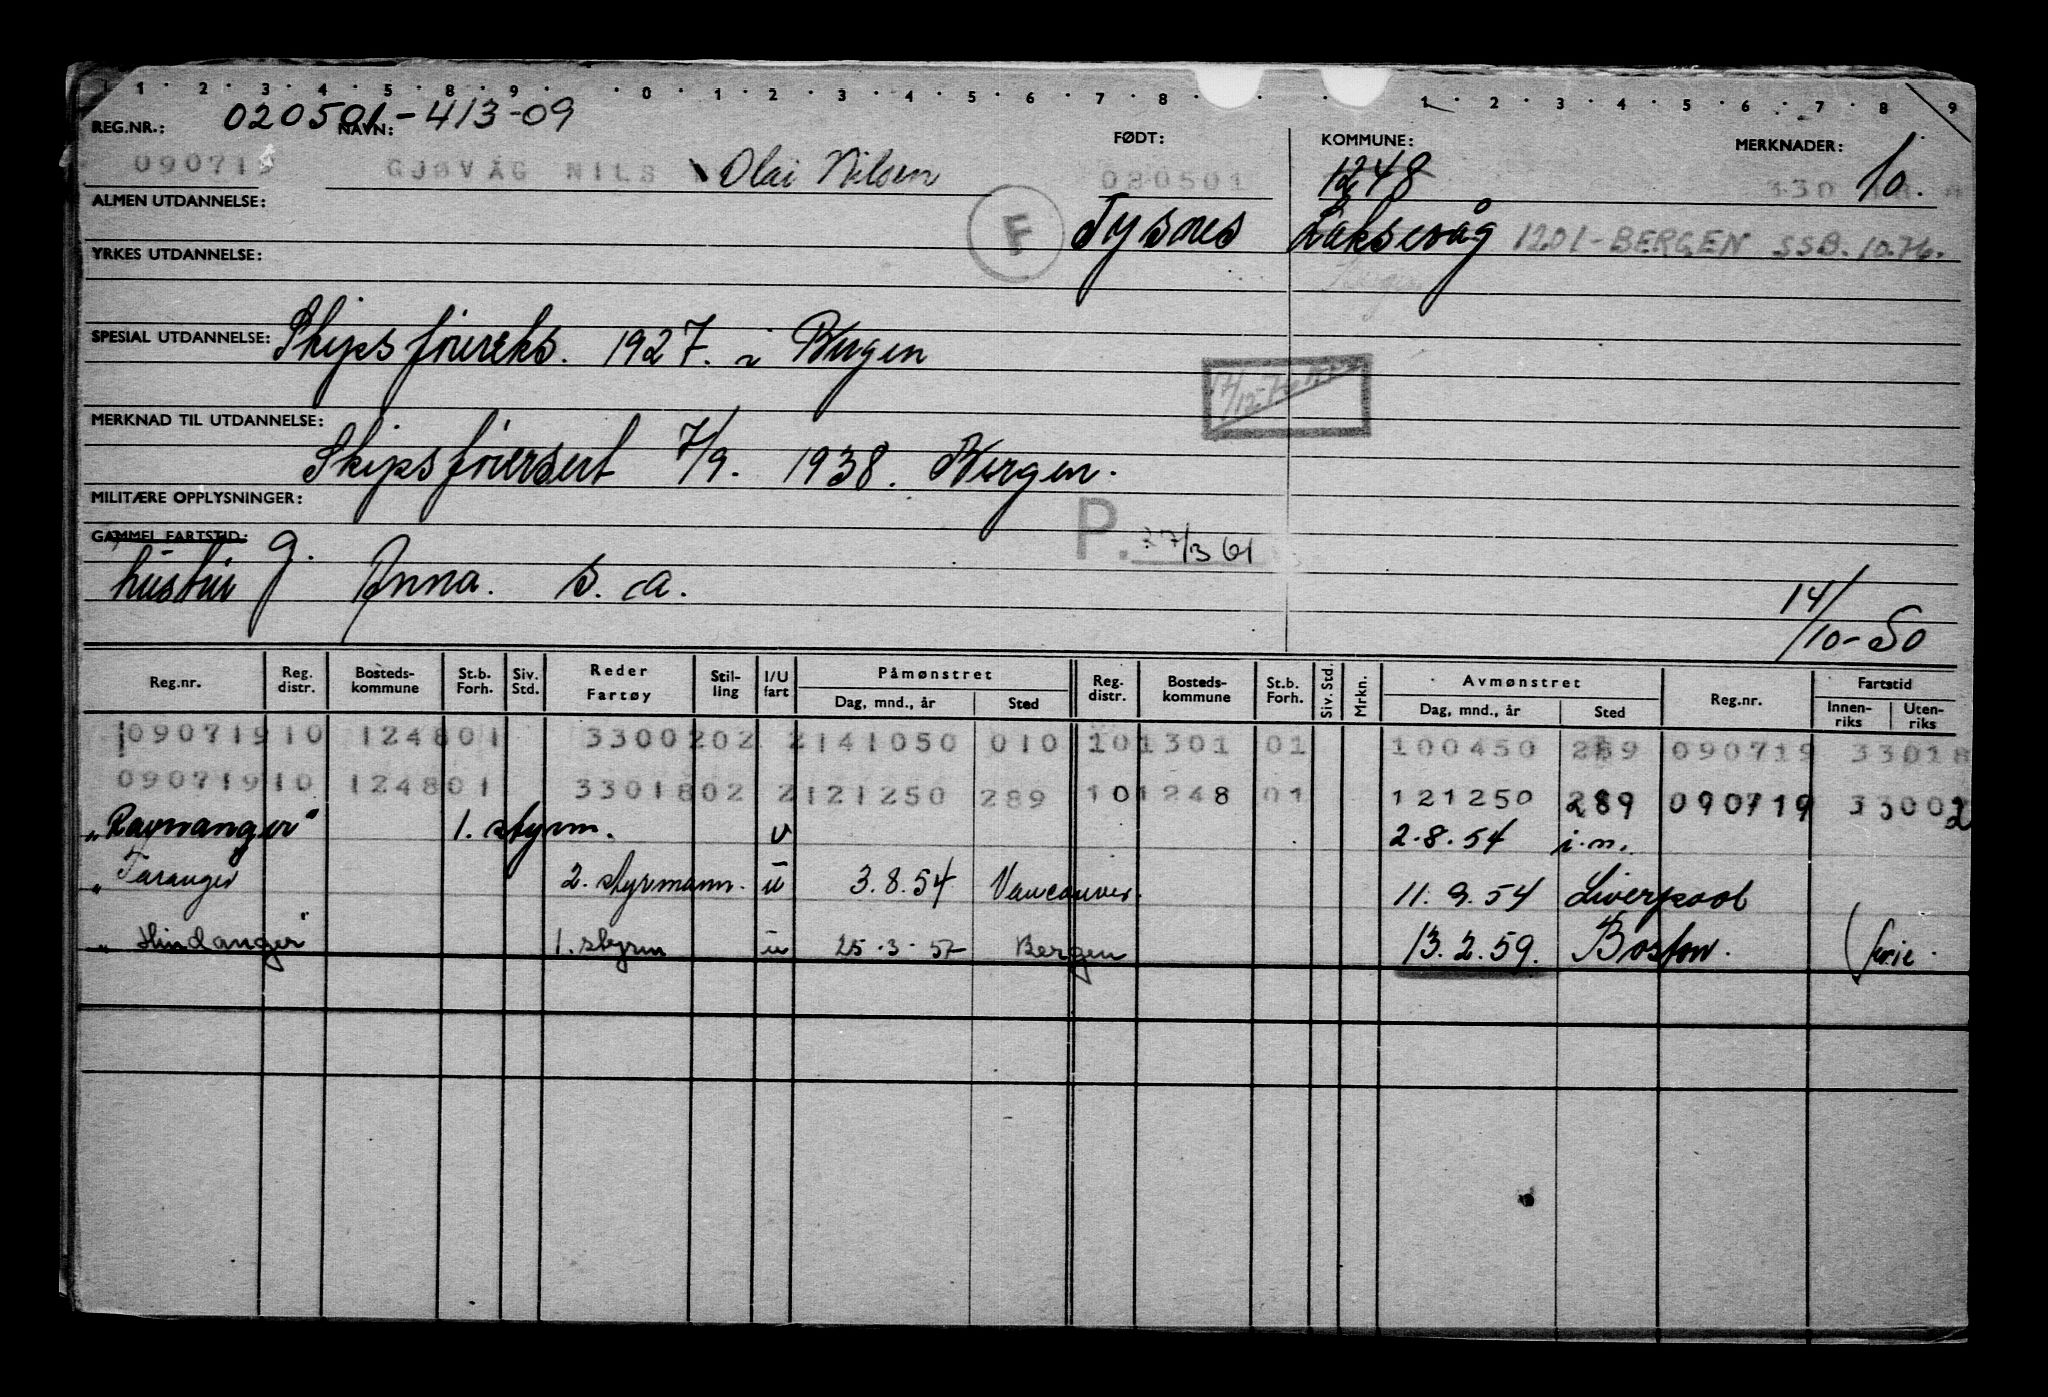 1 2 3 4 5 8 9 0 1 2 3 4 5 6 7 8 1 2 3 4 5 6 7 8 9
020501-413-09
REG.NR.: NAVN: FØDT: KOMMUNE: MERKNADER:
090719 GJØVÅG NILS Olai Nilsen 020501 1248 330 10.
ALMEN UTDANNELSE: F Tysnes Laksevåg 1201-BERGEN SSB. 10.76.
YRKES UTDANNELSE:
SPESIAL UTDANNELSE: Skipsførereks. 1927. i Bergen
MERKNAD TIL UTDANNELSE: Skipsførersert 7/9. 1938. Bergen.
MILITÆRE OPPLYSNINGER:
GAMMEL FARTSTID: P. 27/3 61
hustru G. Anna. s. a.
14/10-50
Reg.nr. Reg. distr. Bosteds-kommune St.b. Forh. Siv. Std. Reder Fartøy Stil-ling I/U fart Påmønstret Dag, mnd., år Sted Reg. distr. Bosteds-kommune St.b. Forh. Siv. Std. Mrkn. Avmønstret Dag, mnd., år Sted Reg.nr. Fartstid Innen-riks Uten-riks
090719 10 1248 01 3300202 2 141050 010 10 1301 01 100450 289 090719 33018
090719 10 1248 01 3301802 2 121250 289 10 1248 01 121250 289 090719 33002
"Ravnanger" 1. styrm. u 2.8.54 i.n.
"Taranger 2. styrmann. u 3.8.54 Vancouver. 11.9.54 Liverpool
"Hindanger" 1. styrm u 25.3.57 Bergen 13.2.59. Boston. (ferie.